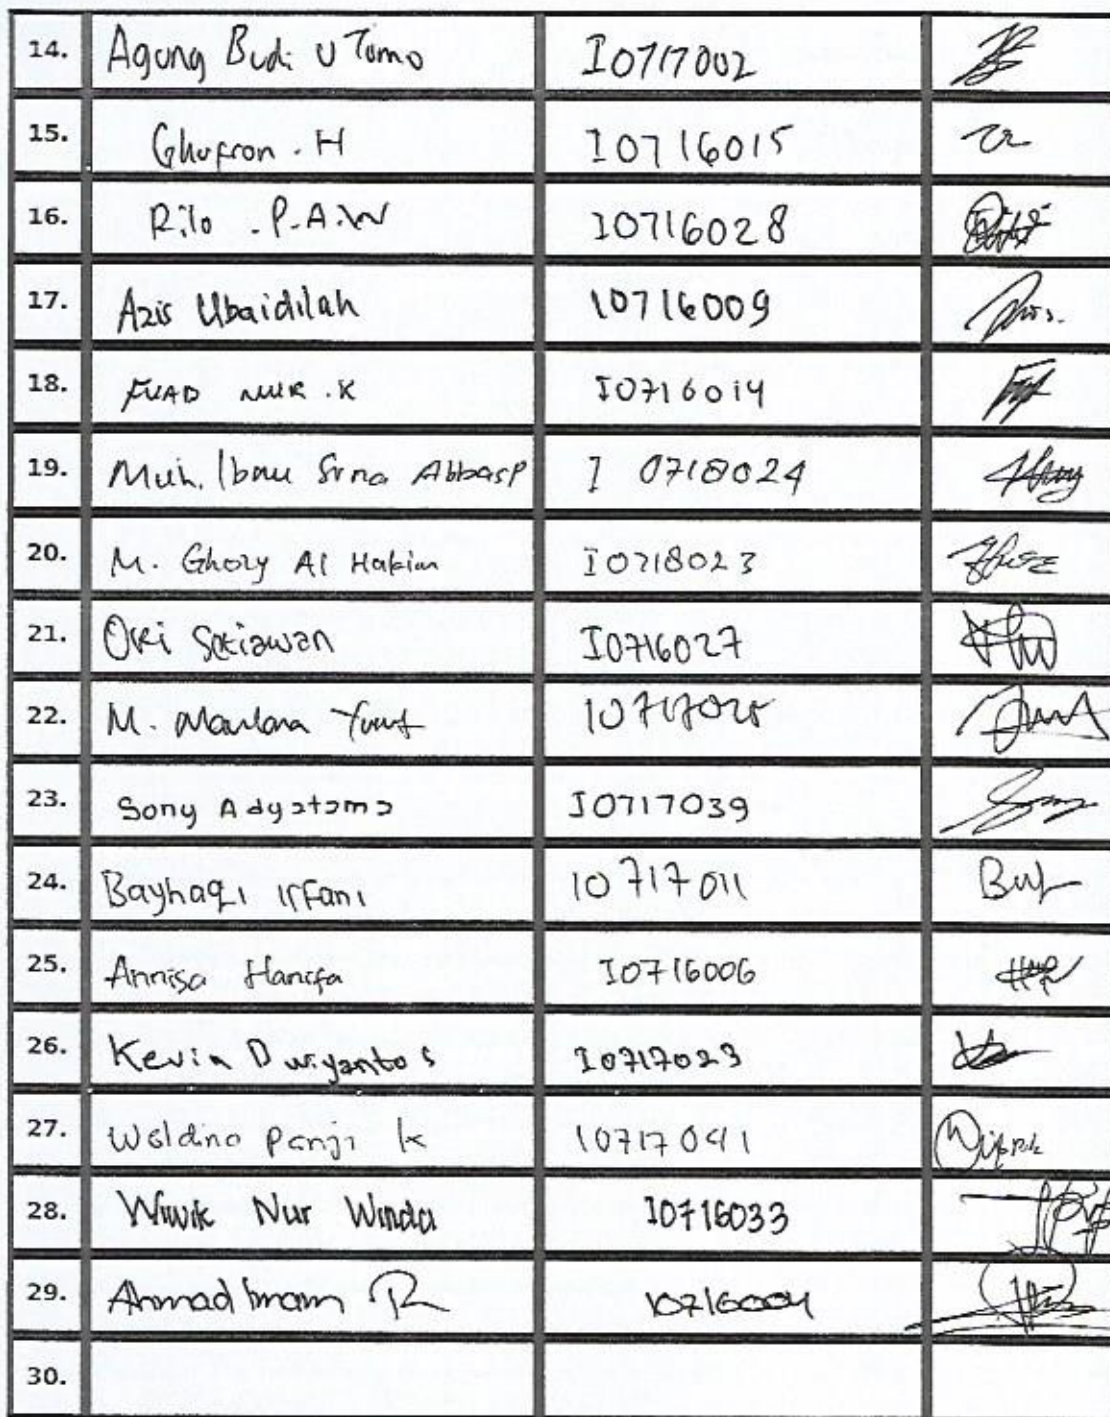 14. Agung Budi UTomo I0717002
15. Ghufron . H I0716015
16. Rilo . P.A.W I0716028
17. Azis Ubaidilah I0716009
18. FUAD NUR . K I0716014
19. Muh. Ibnu Sina Abbas P I 0718024
20. M. Ghozy Al Hakim I0718023
21. Oki Setiawan I0716027
22. M. Maulana Yusuf I0717025
23. Sony Adyatama I0717039
24. Bayhaqi Irfani I0717011
25. Annisa Hanifa I0716006
26. Kevin Dwiyanto S I0717023
27. Weldino Panji K I0717041
28. Wiwik Nur Winda I0716033
29. Ahmad Imam R I0716004
30.